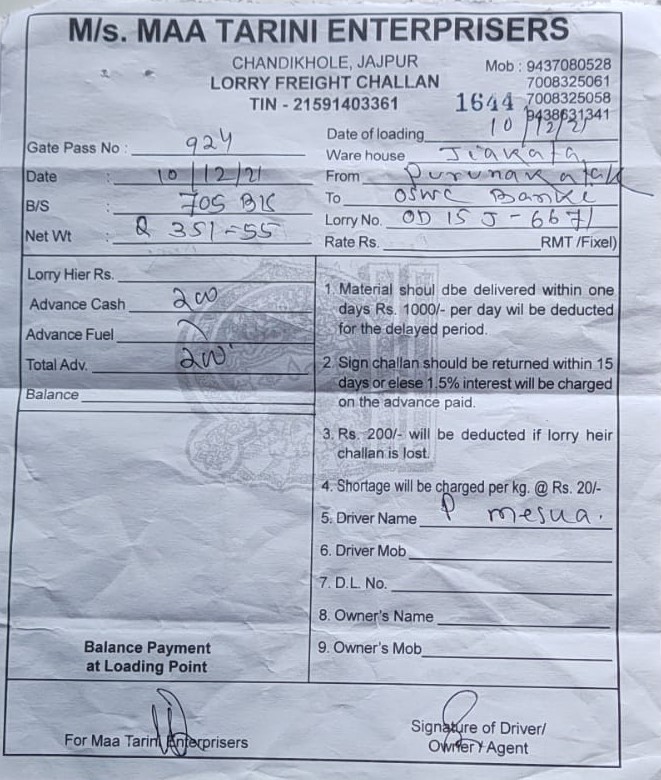 M/s. MAA TARINI ENTERPRISERS
CHANDIKHOLE, JAJPUR
LORRY FREIGHT CHALLAN
TIN - 21591403361
Mob : 9437080528
7008325061
7008325058
9438631341
1644
Gate Pass No : 924
Date : 10/12/21
B/S : 705 BK
Net Wt : Q 351-55
Date of loading 10/12/21
Ware house Jiakata
From Purunakatak
To OSWC Banki
Lorry No. OD 15 J-6671
Rate Rs. RMT /Fixel)
Lorry Hier Rs.
Advance Cash 200
Advance Fuel
Total Adv. 200
Balance
1. Material shoul dbe delivered within one
days Rs. 1000/- per day wil be deducted
for the delayed period.
2. Sign challan should be returned within 15
days or elese 1.5% interest will be charged
on the advance paid.
3. Rs. 200/- will be deducted if lorry heir
challan is lost.
4. Shortage will be charged per kg. @ Rs. 20/-
5. Driver Name P mesua.
6. Driver Mob
7. D.L. No.
8. Owner's Name
9. Owner's Mob
Balance Payment
at Loading Point
For Maa Tarini Enterprisers
Signature of Driver/
Owner / Agent